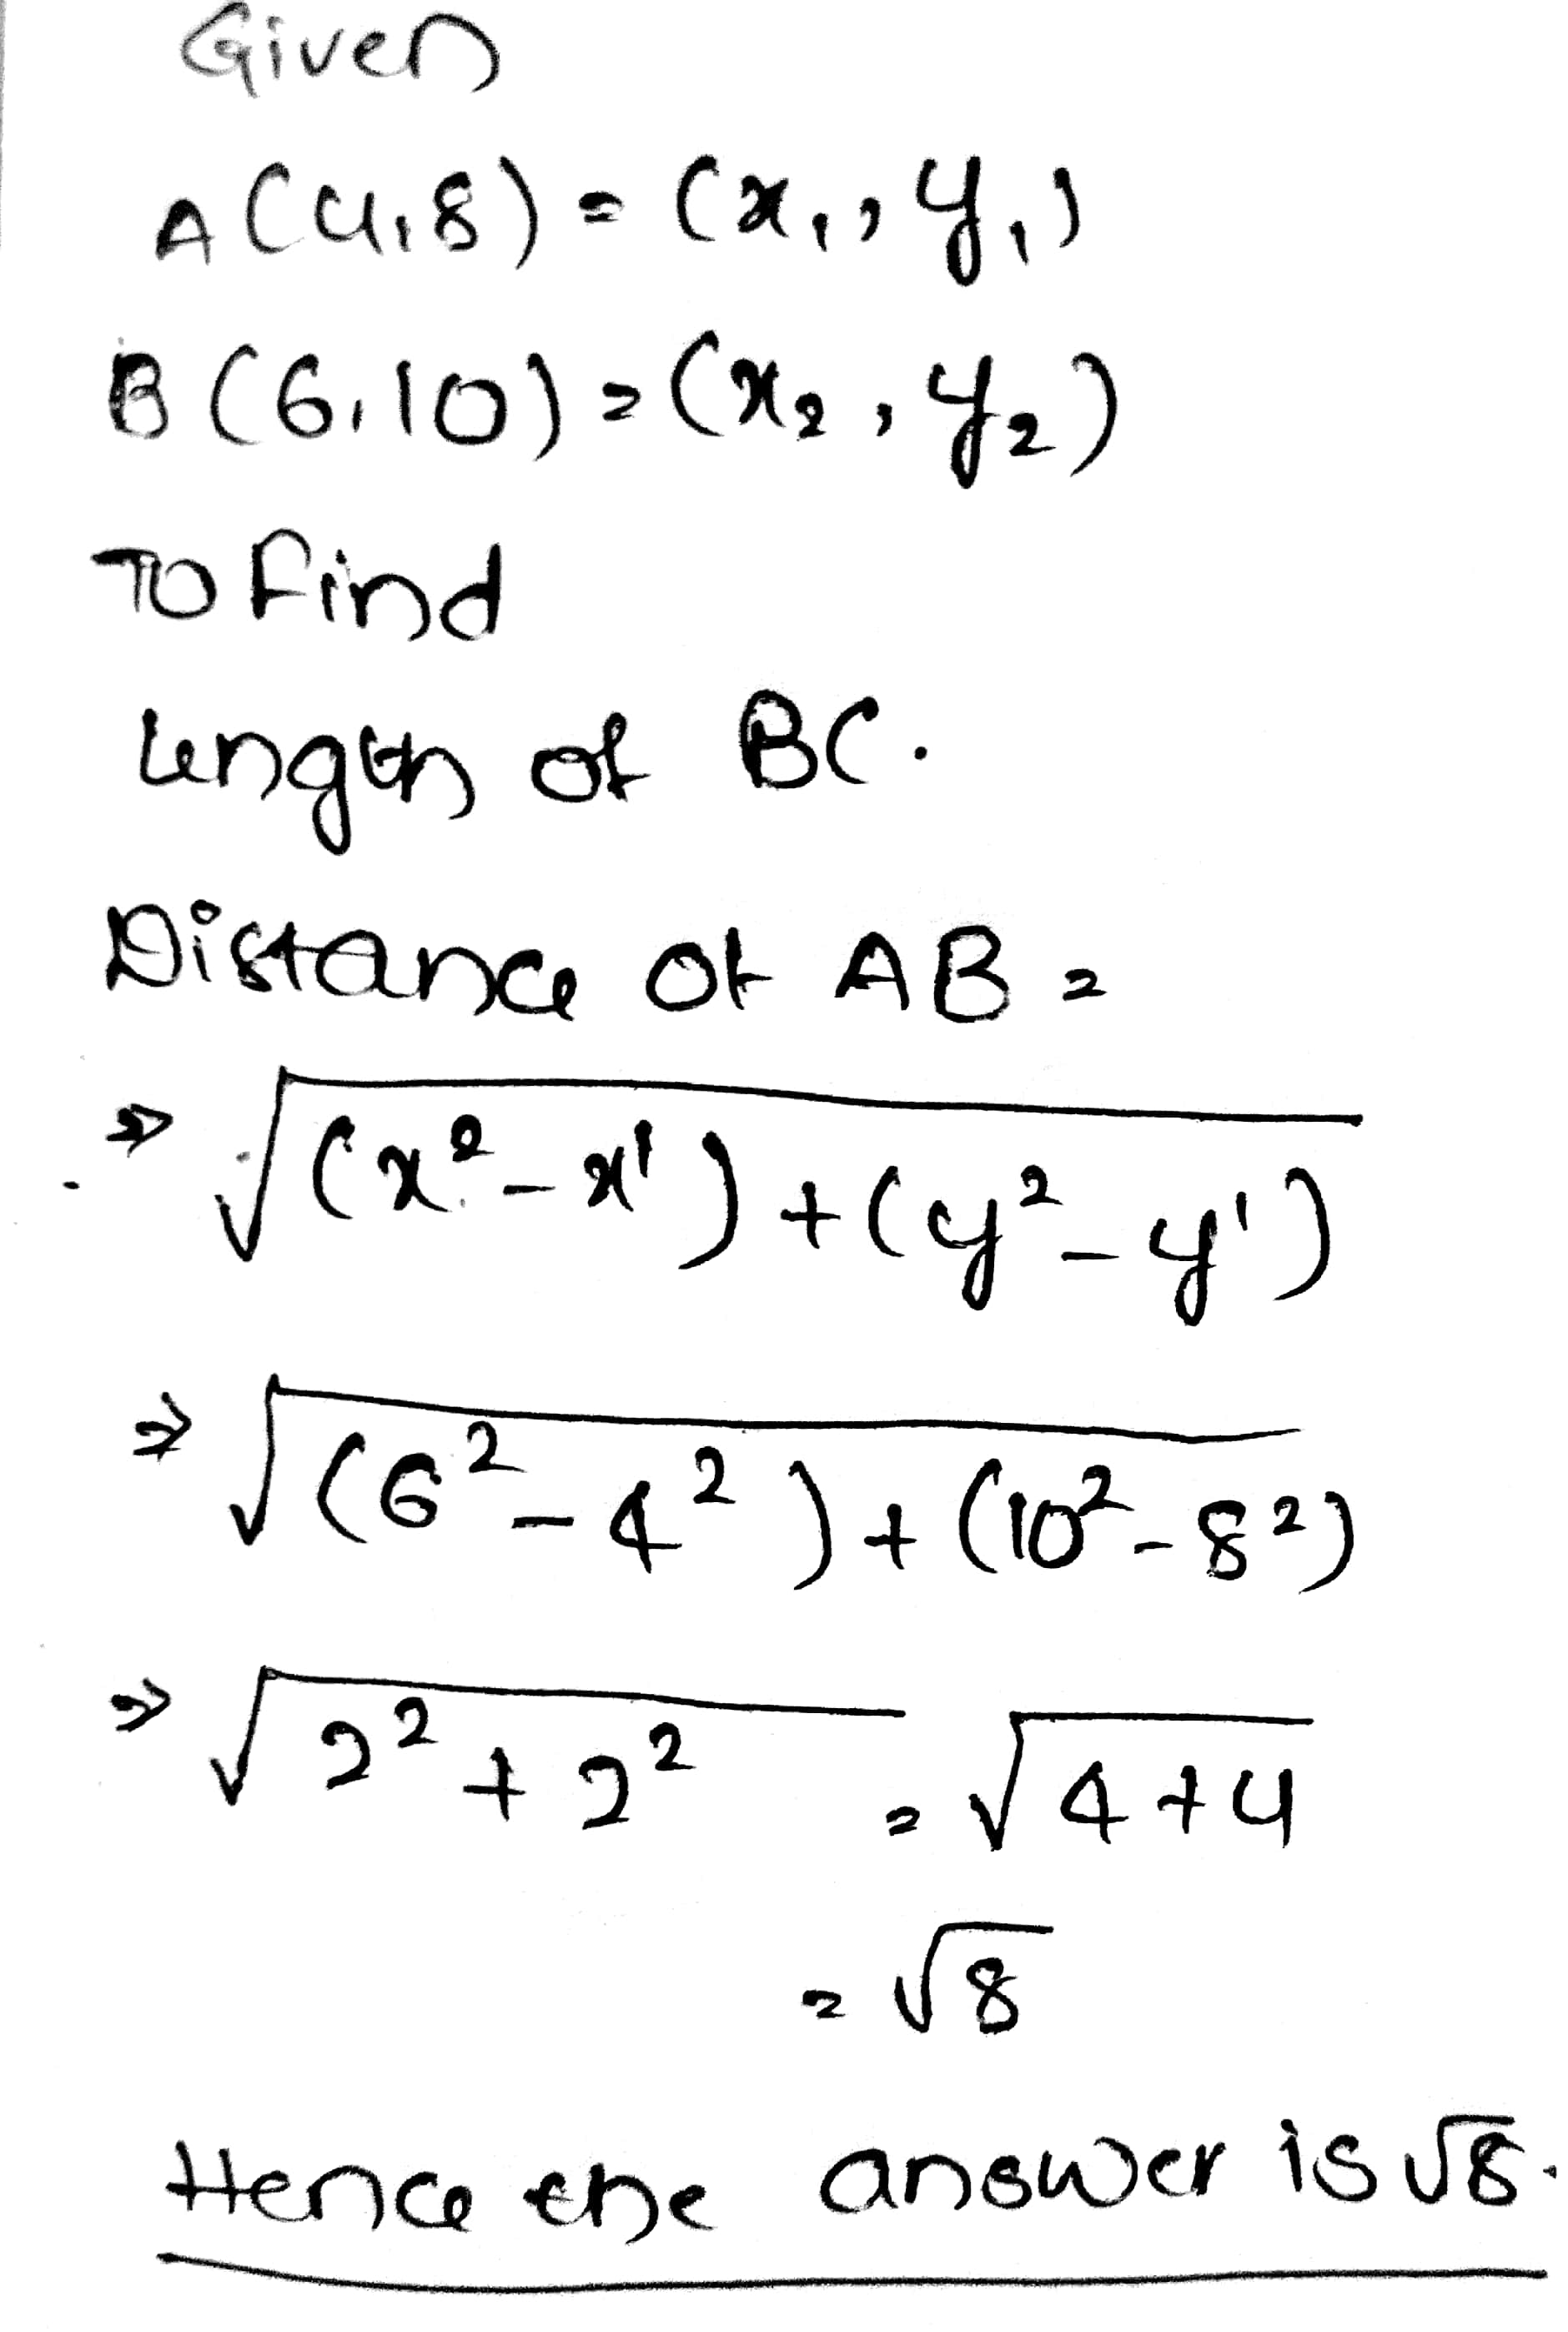 Given
A(4,8) = (x₁, y₁)
B(6,10) = (x₂, y₂)
To find
length of BC.
Distance of AB =
⇒ √(x² - x¹) + (y² - y¹)
⇒ √(6² - 4²) + (10² - 8²)
⇒ √2² + 2² = √4+4
= √8
Hence the answer is √8.